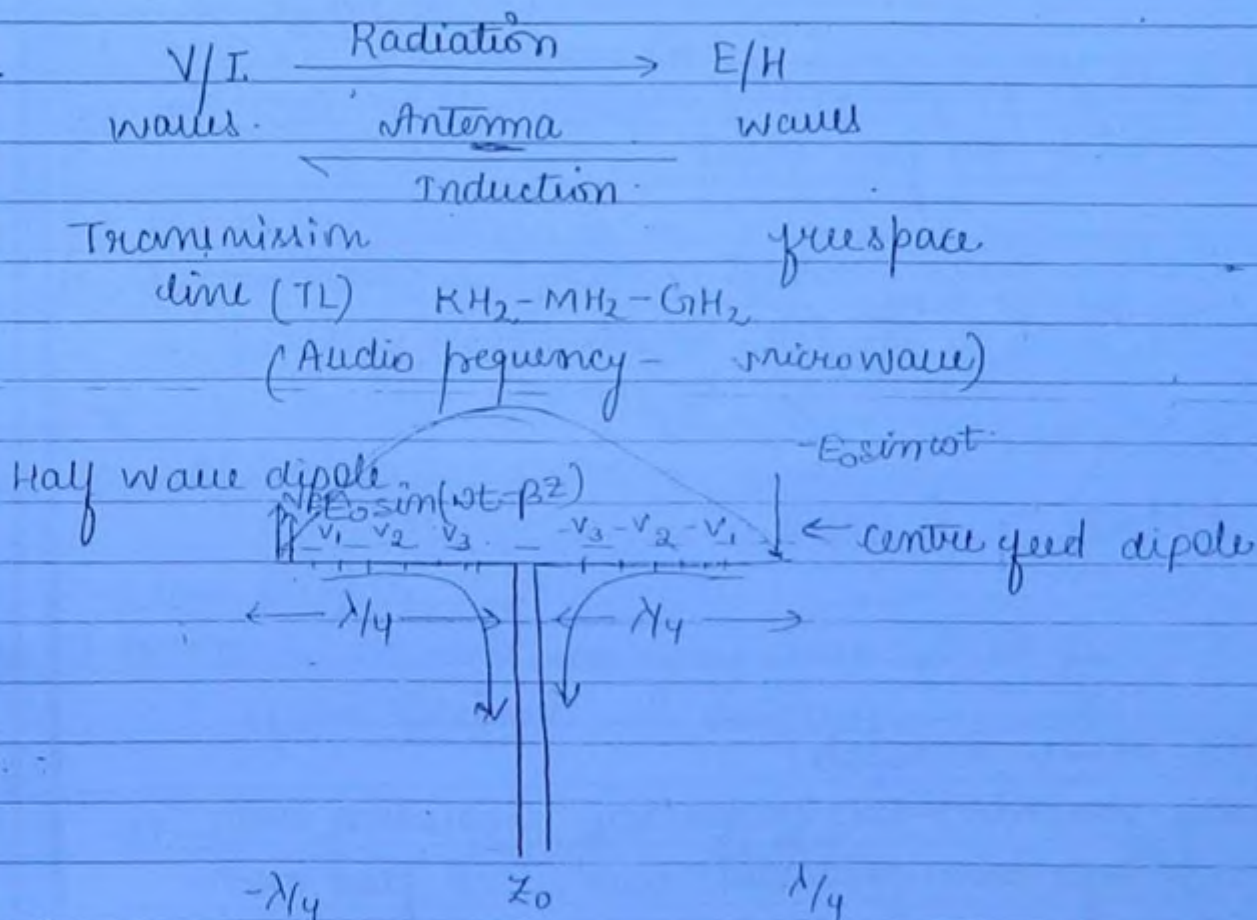 V/I Radiation E/H
waves. Antenna waves
Induction.
Transmission freespace
line (TL) KHz-MHz-GHz
(Audio frequency - microwave)
-E₀sinωt
Half wave dipole.
E₀sin(ωt-βz)
V₁ V₂ V₃ -V₃ -V₂ -V₁ ← centre feed dipole
λ/4 λ/4
-λ/4 Z₀ λ/4